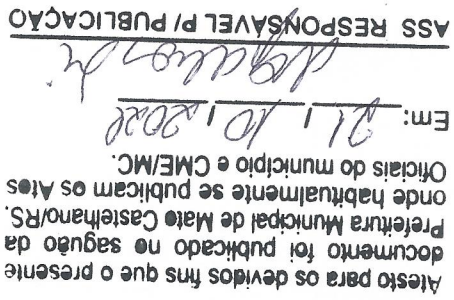 Atesto para os devidos fins que o presente
documento foi publicado no saguão da
Prefeitura Municipal de Mato Castelhano/RS.
onde habitualmente se publicam os Atos
Oficiais do município e CME/MC.
Em: 21, 10, 2020
ASS RESPONSÁVEL P/ PUBLICAÇÃO